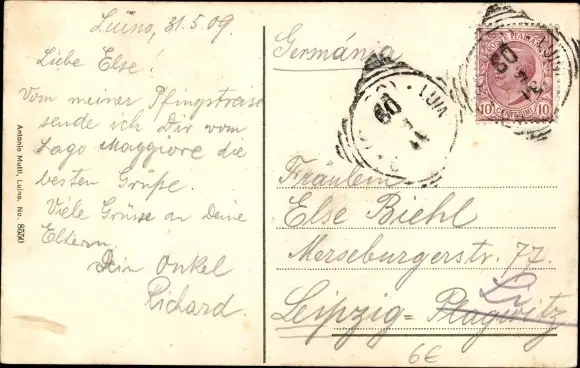 Luino, 31.5.09.
Liebe Else!
Von meiner Pfingstreise
sende ich Dir vom
Lago Maggiore die
besten Grüße.
Viele Grüsse an Deine
Eltern
Dein Onkel
Richard.
Antonio Mutti, Luino. No. 8550
Germánia
10 10
09
09
Fräulein
Else Biehl
Merseburgerstr. 77.
Leipzig = Plagwitz
Li
6€